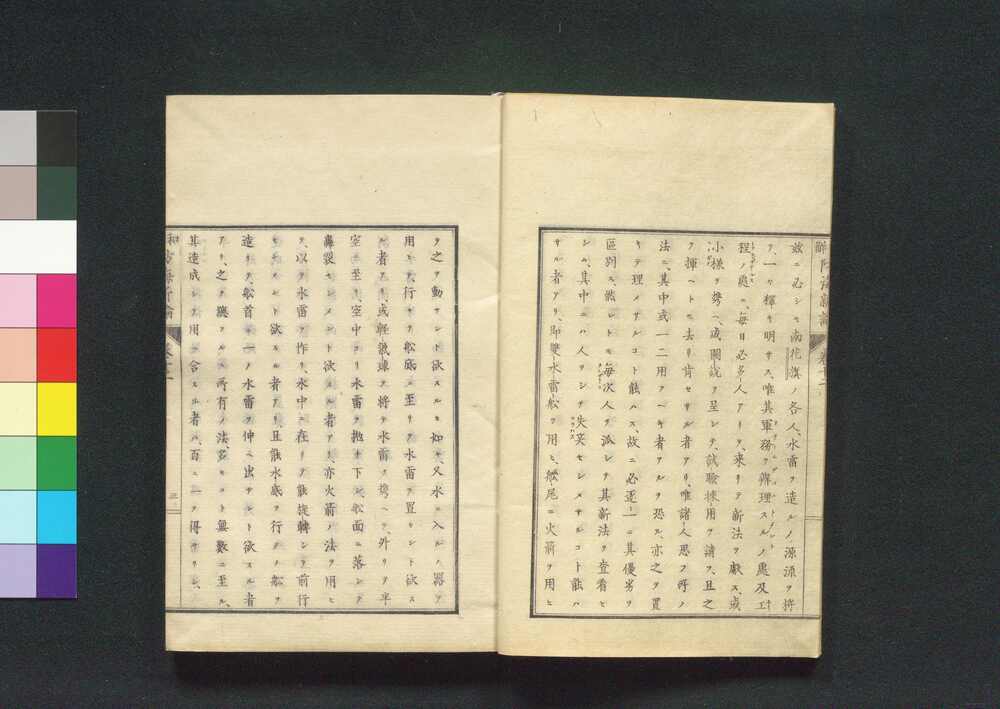 故ニ必シモ南花旗ノ各人、水雷ヲ造ルノ源源ヲ將
ヲ、一々釋キ明サス、唯其軍務ヲ辦理スルノ處及工
程ノ處ニ、毎日必多人アリヲ、來リヲ新法ヲ獻ス、或
小様ヲ携ヘ、或圖説ヲ呈シテ、試驗揀用ヲ請ヲ、且之
ヲ揮ヘトモ去リ肯セサル者アリ、唯諸人思フ所ノ
法ニ、其中或一二用ヲヘキ者アルヲ恐ル、亦之ヲ置
キテ理メサルコト能ハス、故ニ必逐一ニ其優劣ヲ
區別ス、然レトモ毎次人ヲ派シテ其新法ヲ查看セ
シム、其中ニハ人ヲシテ失笑セシメサルコト能ハ
サル者アリ、即雙水雷舩ヲ用ヒ、舩尾ニ火箭ヲ用ヒ
ヲ之ヲ動サント欲スルモ如キ、又水ニ入ルノ器ヲ
用ヒヲ、行キヲ舩底ニ至リヲ水雷ヲ置カント欲ス
ル者アリ、或軽氣球ヲ將テ水雷ヲ携ヘヲ、外リヲ半
空ニ至リ、空中ヨリ水雷ヲ抛チ下シ、舩面ニ落シテ
轟裂セシメント欲スル者アリ、亦火箭ノ法ヲ用ヒ
ヲ、以ヲ水雷ヲ作リ、水中ニ在リヲ能旋轉シヲ前行
セシメント欲スル者アリ、且能水底ヲ行クノ舩ヲ
造リヲ、舩首ヨリ一ノ水雷ヲ伸ヘ出サント欲スル者
アリ、之ヲ總フルニ所有ノ法、多キコト無數ニ至ル、
其造成シテ用ニ合スル者ハ、百ニ一ヲ得サリシ、